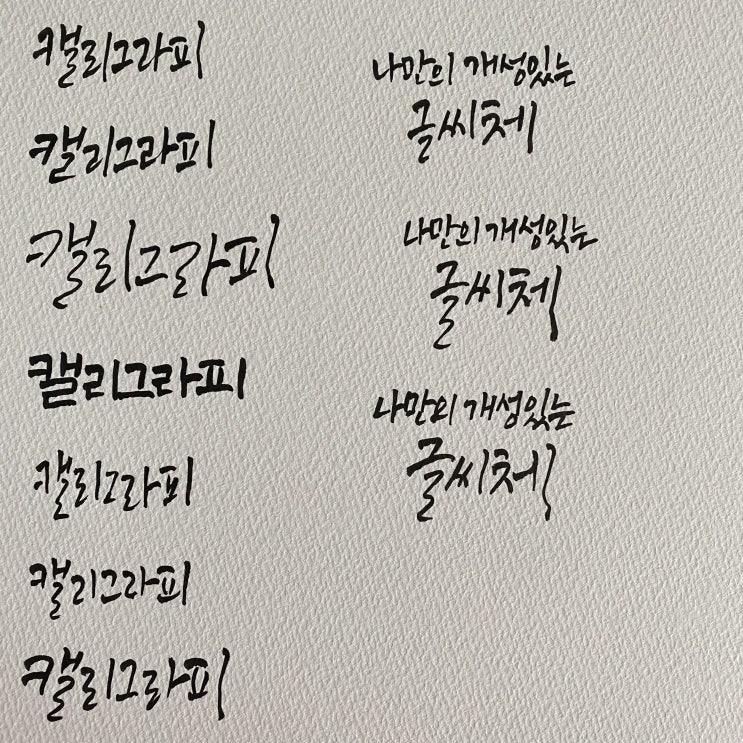 캘리그라피
캘리그라피
캘리그라피
캘리그라피
캘리그라피
캘리그라피
캘리그라피
나만의 개성있는
글씨체
나만의 개성있는
글씨체
나만의 개성있는
글씨체